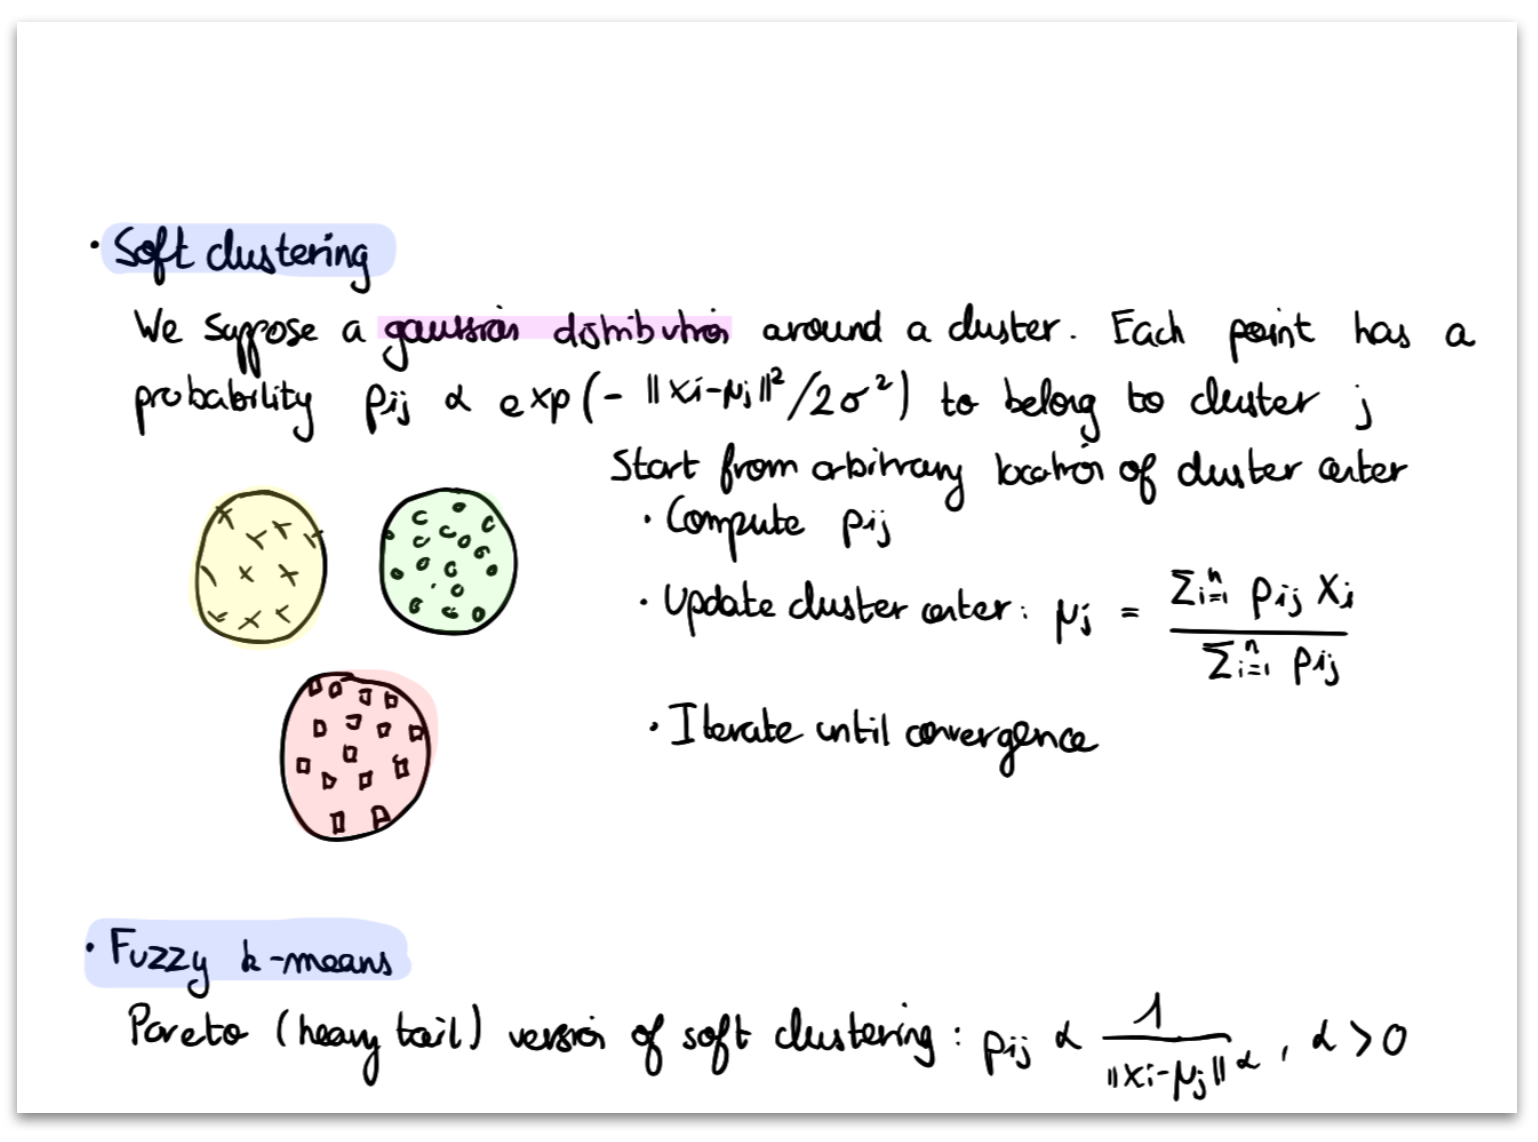 · Soft clustering
We suppose a gaussian distribution around a cluster. Each point has a
probability pij ∝ exp(- ||xi-μj||²/2σ²) to belong to cluster j
Start from arbitrary location of cluster center
· Compute pij
· Update cluster center: μj = Σi=1^n pij xi / Σi=1^n pij
· Iterate until convergence
· Fuzzy k-means
Pareto (heavy tail) version of soft clustering: pij ∝ 1 / ||xi-μj||^α, α > 0